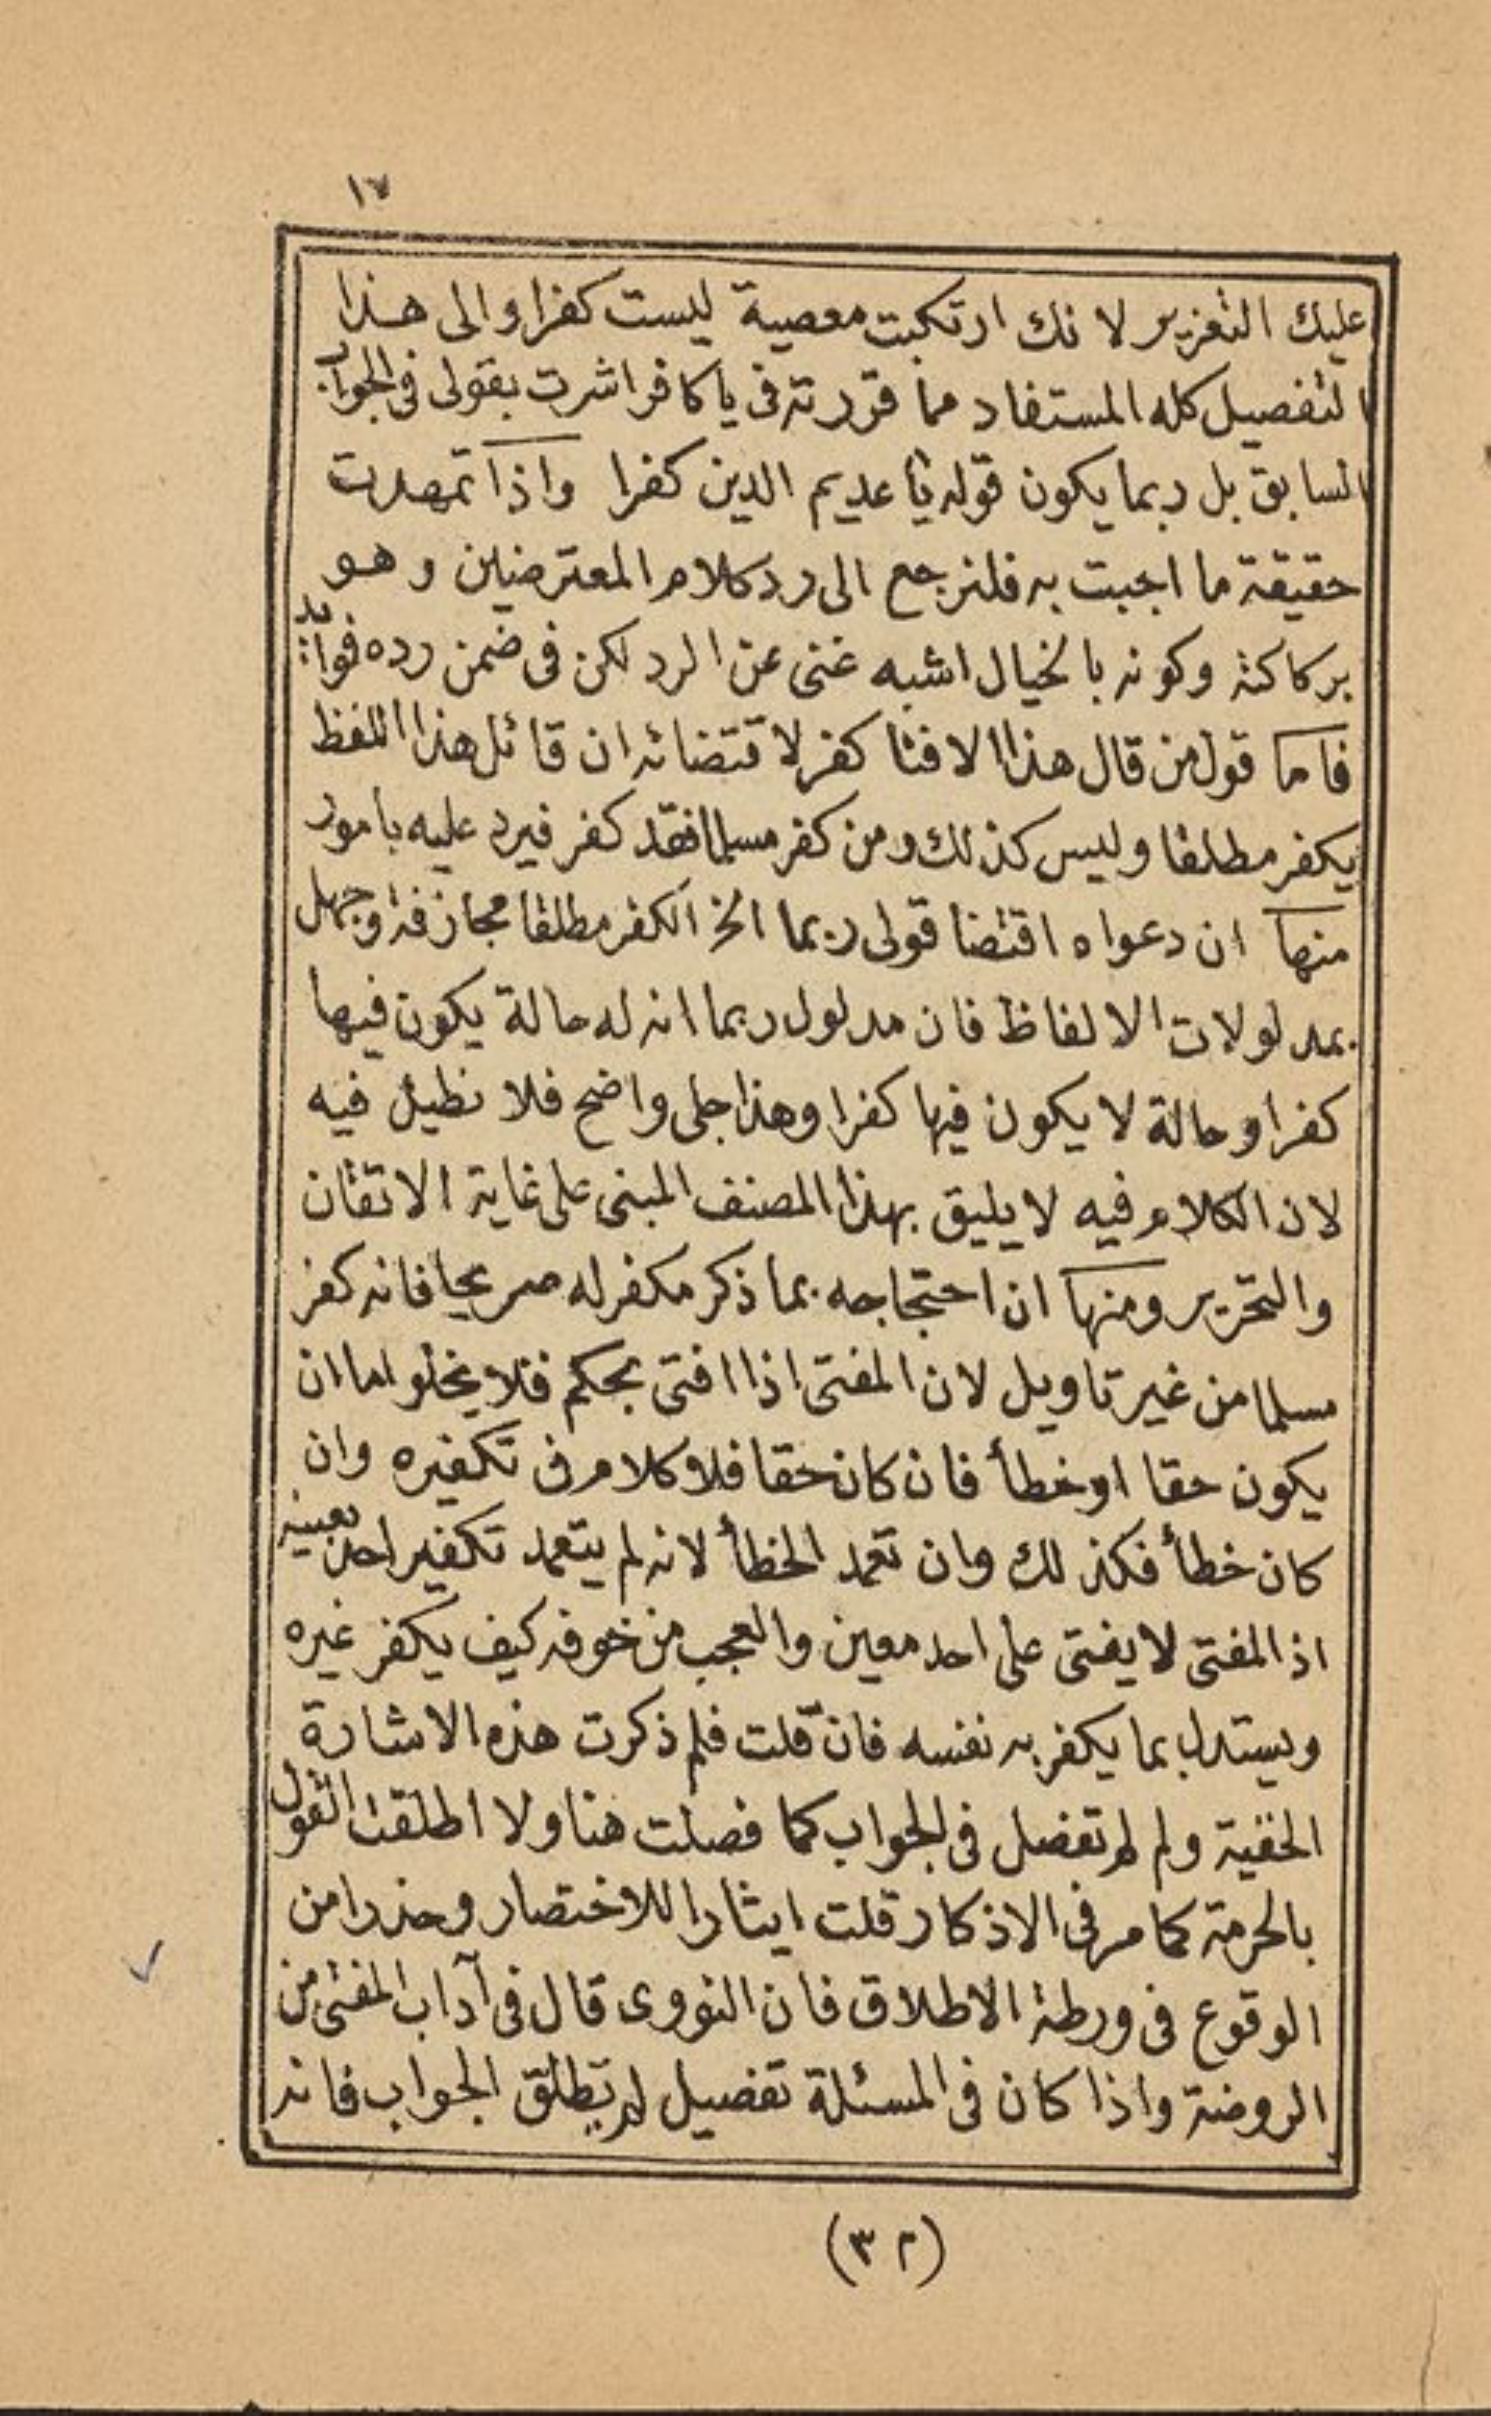 ١٧
عليك التعزير لانك ارتكبت معصية ليست كفرا والى هذا
التفصيل كله المستفاد مما قررته فى يا كافر اشرت بقولى فى الجواب
السابق بل ربما يكون قوله يا عديم الدين كفرا واذا تمهدت
حقيقة ما اجبت به فلنرجع الى رد كلام المعترضين وهو
بركاكته وكونه بالخيال اشبه غنى عن الرد لكن فى ضمن رده فوائد
فاما قول من قال هذا الافتا كفر لاقتضائه ان قائل هذا اللفظ
يكفر مطلقا وليس كذلك ومن كفر مسلما فقد كفر فيرد عليه بامور
منها ان دعواه اقتضا قولى ربما الخ الكفر مطلقا مجازفة وجهل
بمدلولات الالفاظ فان مدلول ربما انه له حالة يكون فيها
كفرا وحالة لا يكون فيها كفرا وهذا جلى واضح فلا نطيل فيه
لان الكلام فيه لا يليق بهذا المصنف المبنى على غاية الاتقان
والتحرير ومنها ان احتجاجه بما ذكر مكفر له صريحا فانه كفر
مسلما من غير تاويل لان المفتى اذا افتى بحكم فلا يخلو اما ان
يكون حقا او خطأ فان كان حقا فلا كلام فى تكفيره وان
كان خطأ فكذلك وان تعمد الخطأ لانه لم يتعمد تكفير احد بعينه
اذ المفتى لا يفتى على احد معين والعجب من خوفه كيف يكفر غيره
ويستدل بما يكفر به نفسه فان قلت فلم ذكرت هذه الاشارة
الخفية ولم لم تفصل فى الجواب كما فصلت هنا ولا اطلقت القول
بالحرمة كما مر فى الاذكار قلت ايثارا للاختصار وحذرا من
الوقوع فى ورطة الاطلاق فان النووى قال فى آداب المفتى من
الروضة واذا كان فى المسئلة تفصيل لم يطلق الجواب فانه
(٣٢)